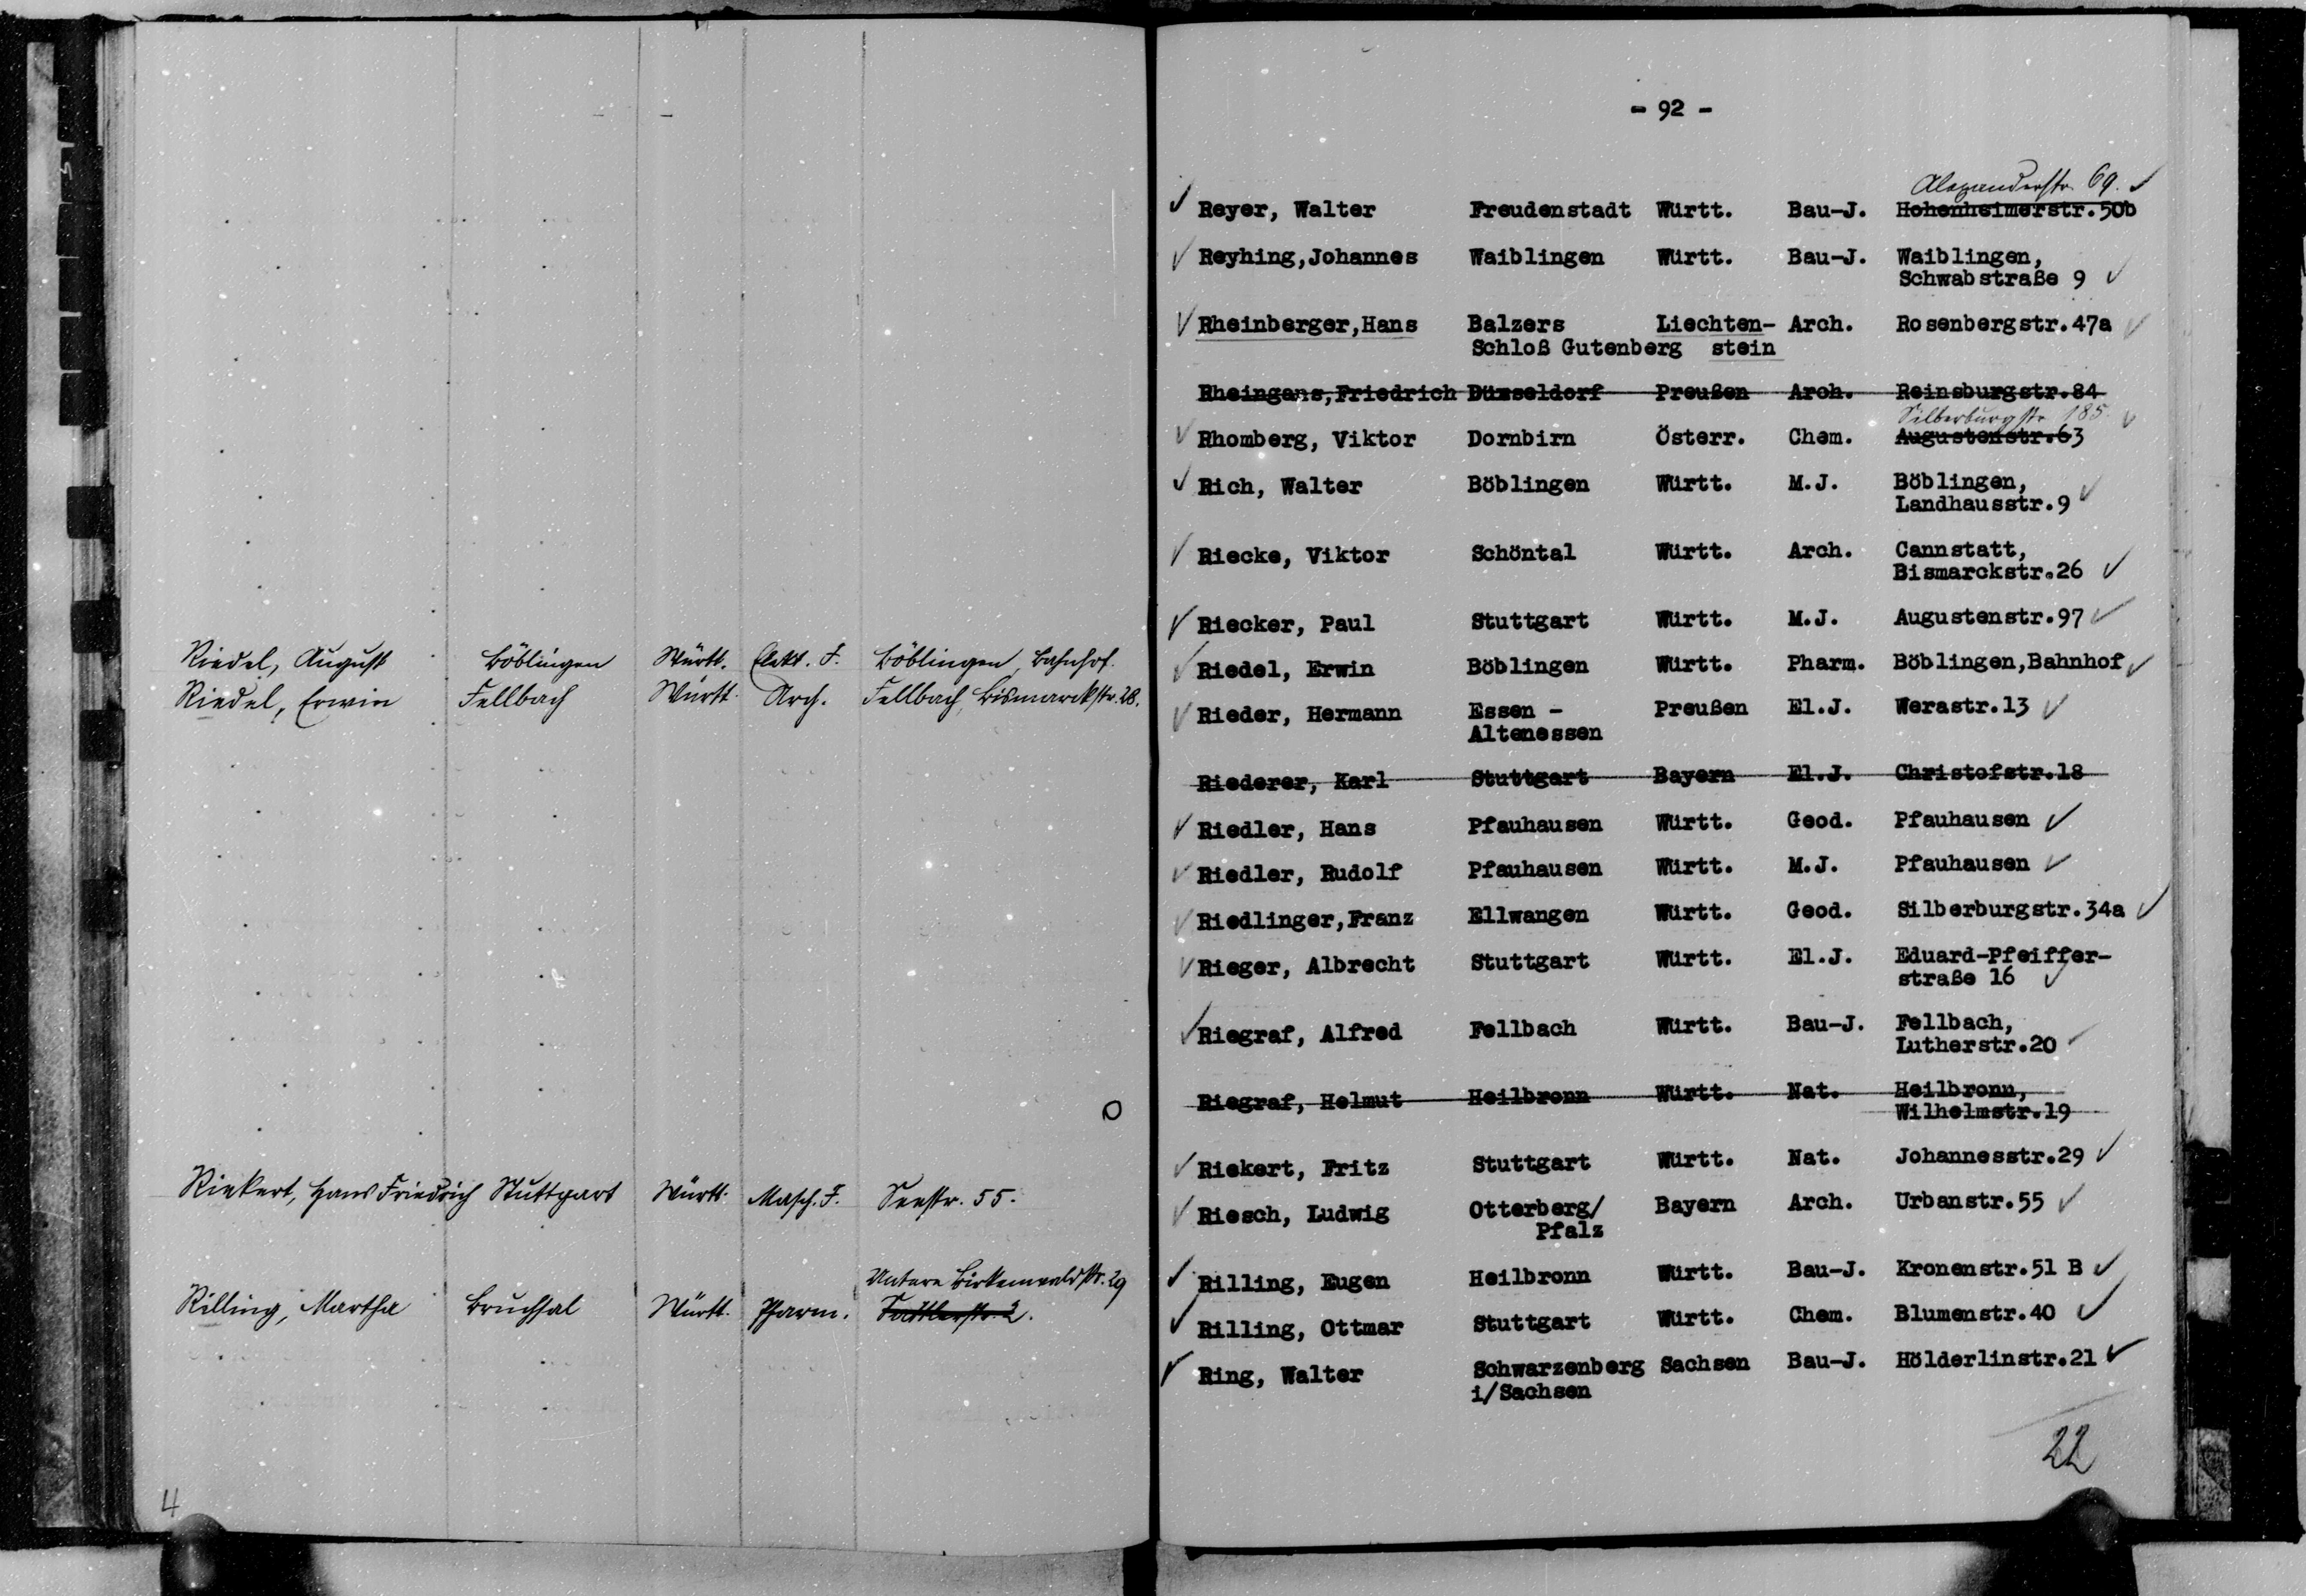 Riedel, August Böblingen Württ. Elekt. J. Böblingen, Bahnhof.
Riedel, Erwin Fellbach Württ. Arch. Fellbach, Bismarckstr. 28.
Riekert, Hans Friedrich Stuttgart Württ. Masch. J. Seestr. 55.
Untere Birkenwaldstr. 29
Rilling, Martha Bruchsal Württ. Pharm.
4
- 92 -
Alexanderstr. 69.
Reyer, Walter Freudenstadt Württ. Bau-J. Hohenheimerstr.50b
Reyhing,Johannes Waiblingen Württ. Bau-J. Waiblingen,
Schwabstraße 9
Rheinberger,Hans Balzers Liechten- Arch. Rosenbergstr.47a
Schloß Gutenberg stein
Rheingans,Friedrich Düsseldorf Preußen Arch. Reinsburgstr.84
Silberburgstr. 185.
Rhomberg, Viktor Dornbirn Österr. Chem. Augustenstr.63
Rich, Walter Böblingen Württ. M.J. Böblingen,
Landhausstr.9
Riecke, Viktor Schöntal Württ. Arch. Cannstatt,
Bismarckstr.26
Riecker, Paul Stuttgart Württ. M.J. Augustenstr.97
Riedel, Erwin Böblingen Württ. Pharm. Böblingen,Bahnhof
Rieder, Hermann Essen - Preußen El.J. Werastr.13
Altenessen
Riederer, Karl Stuttgart Bayern El.J. Christofstr.18
Riedler, Hans Pfauhausen Württ. Geod. Pfauhausen
Riedler, Rudolf Pfauhausen Württ. M.J. Pfauhausen
Riedlinger,Franz Ellwangen Württ. Geod. Silberburgstr.34a
Rieger, Albrecht Stuttgart Württ. El.J. Eduard-Pfeiffer-
straße 16
Riegraf, Alfred Fellbach Württ. Bau-J. Fellbach,
Lutherstr.20
Riegraf, Helmut Heilbronn Württ. Nat. Heilbronn,
Wilhelmstr.19
Riekert, Fritz Stuttgart Württ. Nat. Johannesstr.29
Riesch, Ludwig Otterberg/ Bayern Arch. Urbanstr.55
Pfalz
Rilling, Eugen Heilbronn Württ. Bau-J. Kronenstr.51 B
Rilling, Ottmar Stuttgart Württ. Chem. Blumenstr.40
Ring, Walter Schwarzenberg Sachsen Bau-J. Hölderlinstr.21
i/Sachsen
22